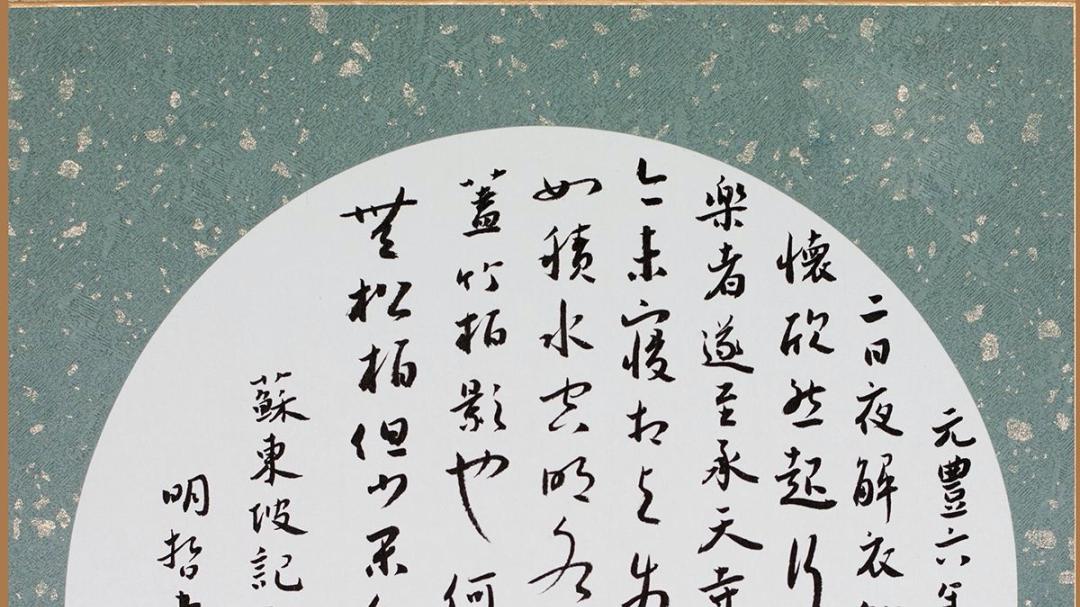 元豐六年
二日夜解衣
懷欣然起行
楽者遂至承天寺
未寢相與步
如積水空明
蓋竹柏影也何
無松柏但少閑
蘇東坡記
明哲